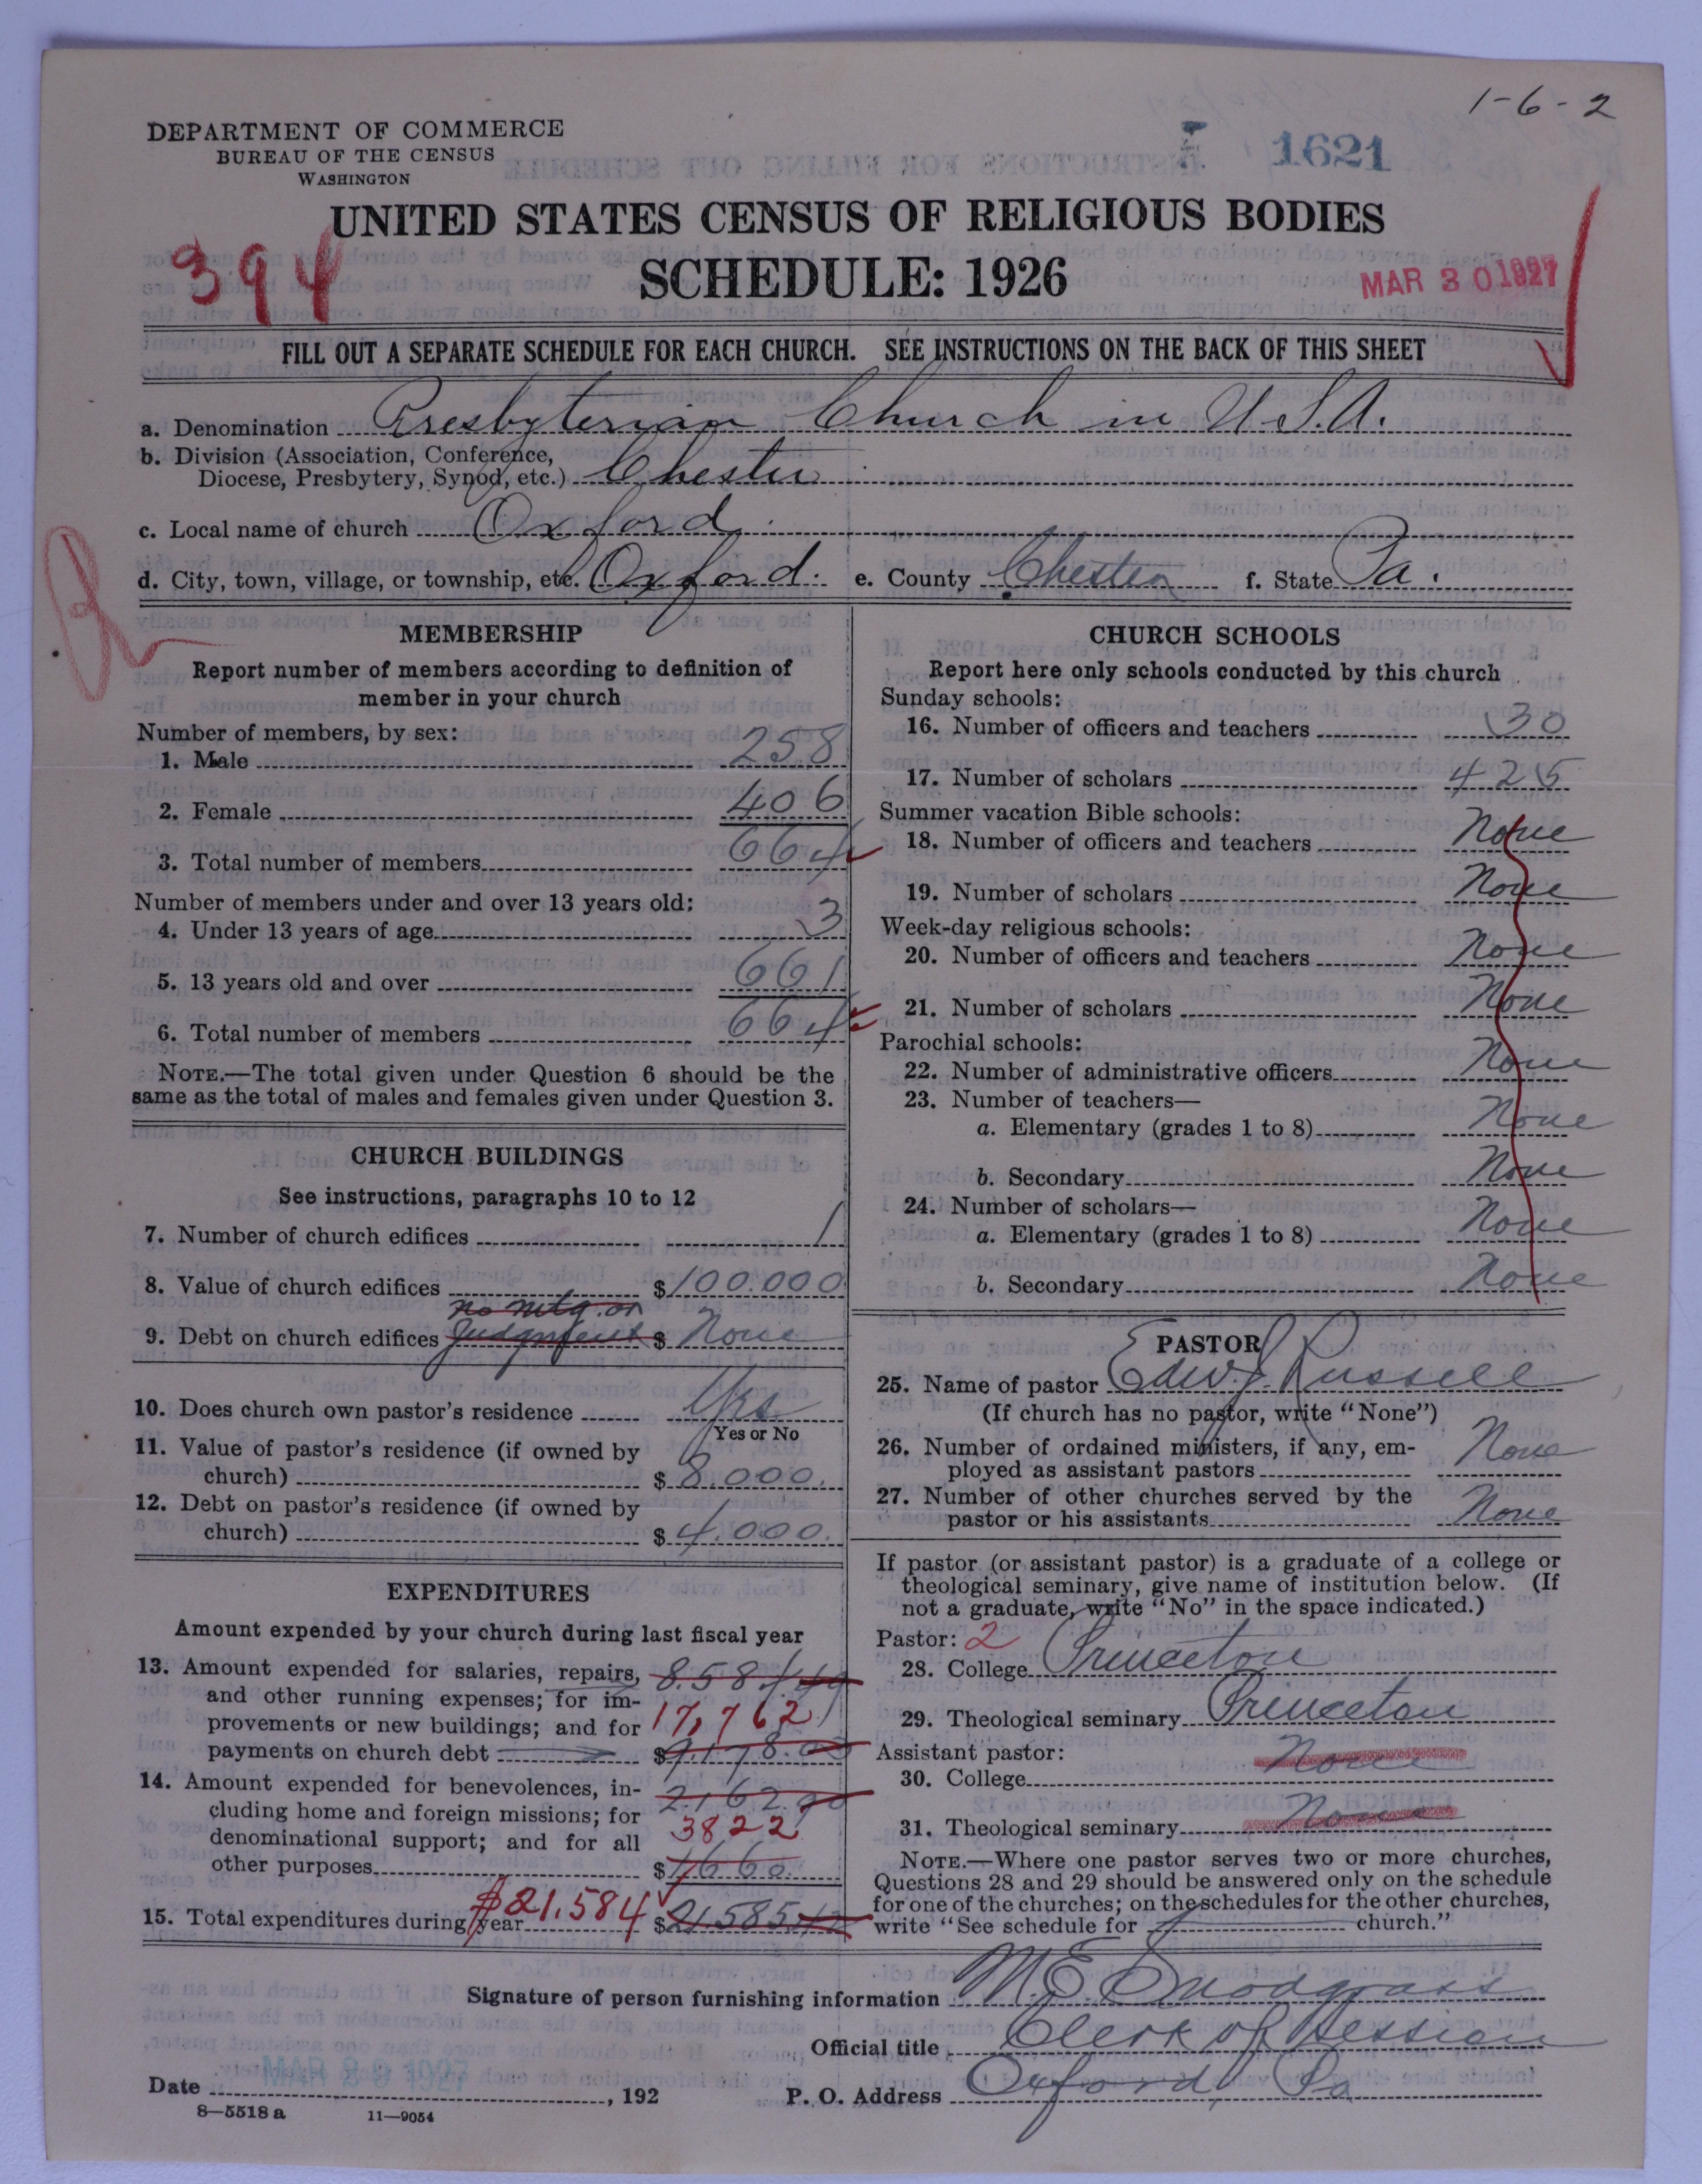 1-6-2
DEPARTMENT OF COMMERCE
BUREAU OF THE CENSUS
WASHINGTON
1621
UNITED STATES CENSUS OF RELIGIOUS BODIES
394
SCHEDULE: 1926
MAR 30 1927
FILL OUT A SEPARATE SCHEDULE FOR EACH CHURCH. SEE INSTRUCTIONS ON THE BACK OF THIS SHEET
a. Denomination Presbyterian Church in U.S.A.
b. Division (Association, Conference,
Diocese, Presbytery, Synod, etc.) Chester
c. Local name of church Oxford
d. City, town, village, or township, etc. Oxford. e. County Chester f. State Pa.
MEMBERSHIP
Report number of members according to definition of
member in your church
Number of members, by sex:
1. Male 258
2. Female 406
3. Total number of members 664
Number of members under and over 13 years old:
4. Under 13 years of age 3
5. 13 years old and over 661
6. Total number of members 664
NOTE.—The total given under Question 6 should be the
same as the total of males and females given under Question 3.
CHURCH BUILDINGS
See instructions, paragraphs 10 to 12
7. Number of church edifices 1
8. Value of church edifices $100.000
no mtg. or
9. Debt on church edifices Judgment $ None
10. Does church own pastor's residence Yes
Yes or No
11. Value of pastor's residence (if owned by
church) $8.000.
12. Debt on pastor's residence (if owned by
church) $4.000.
EXPENDITURES
Amount expended by your church during last fiscal year
13. Amount expended for salaries, repairs, 8.584
and other running expenses; for im-
provements or new buildings; and for 17,762
payments on church debt $9.178.00
14. Amount expended for benevolences, in-
cluding home and foreign missions; for 2.162
denominational support; and for all 3822
other purposes $1660.
15. Total expenditures during year $21.584 $21.585
CHURCH SCHOOLS
Report here only schools conducted by this church
Sunday schools:
16. Number of officers and teachers 30
17. Number of scholars 425
Summer vacation Bible schools:
18. Number of officers and teachers None
19. Number of scholars None
Week-day religious schools:
20. Number of officers and teachers None
21. Number of scholars None
Parochial schools:
22. Number of administrative officers None
23. Number of teachers—
a. Elementary (grades 1 to 8) None
b. Secondary None
24. Number of scholars—
a. Elementary (grades 1 to 8) None
b. Secondary None
PASTOR
25. Name of pastor Edw. J. Russell
(If church has no pastor, write "None")
26. Number of ordained ministers, if any, em-
ployed as assistant pastors None
27. Number of other churches served by the
pastor or his assistants None
If pastor (or assistant pastor) is a graduate of a college or
theological seminary, give name of institution below. (If
not a graduate, write "No" in the space indicated.)
Pastor: 2
28. College Princeton
29. Theological seminary Princeton
Assistant pastor:
30. College None
31. Theological seminary None
NOTE.—Where one pastor serves two or more churches,
Questions 28 and 29 should be answered only on the schedule
for one of the churches; on the schedules for the other churches,
write "See schedule for church."
Signature of person furnishing information M. E. Snodgrass
Official title Clerk of Session
Date MAR 29 1927, 192 P. O. Address Oxford Pa
8—5518 a 11—9054